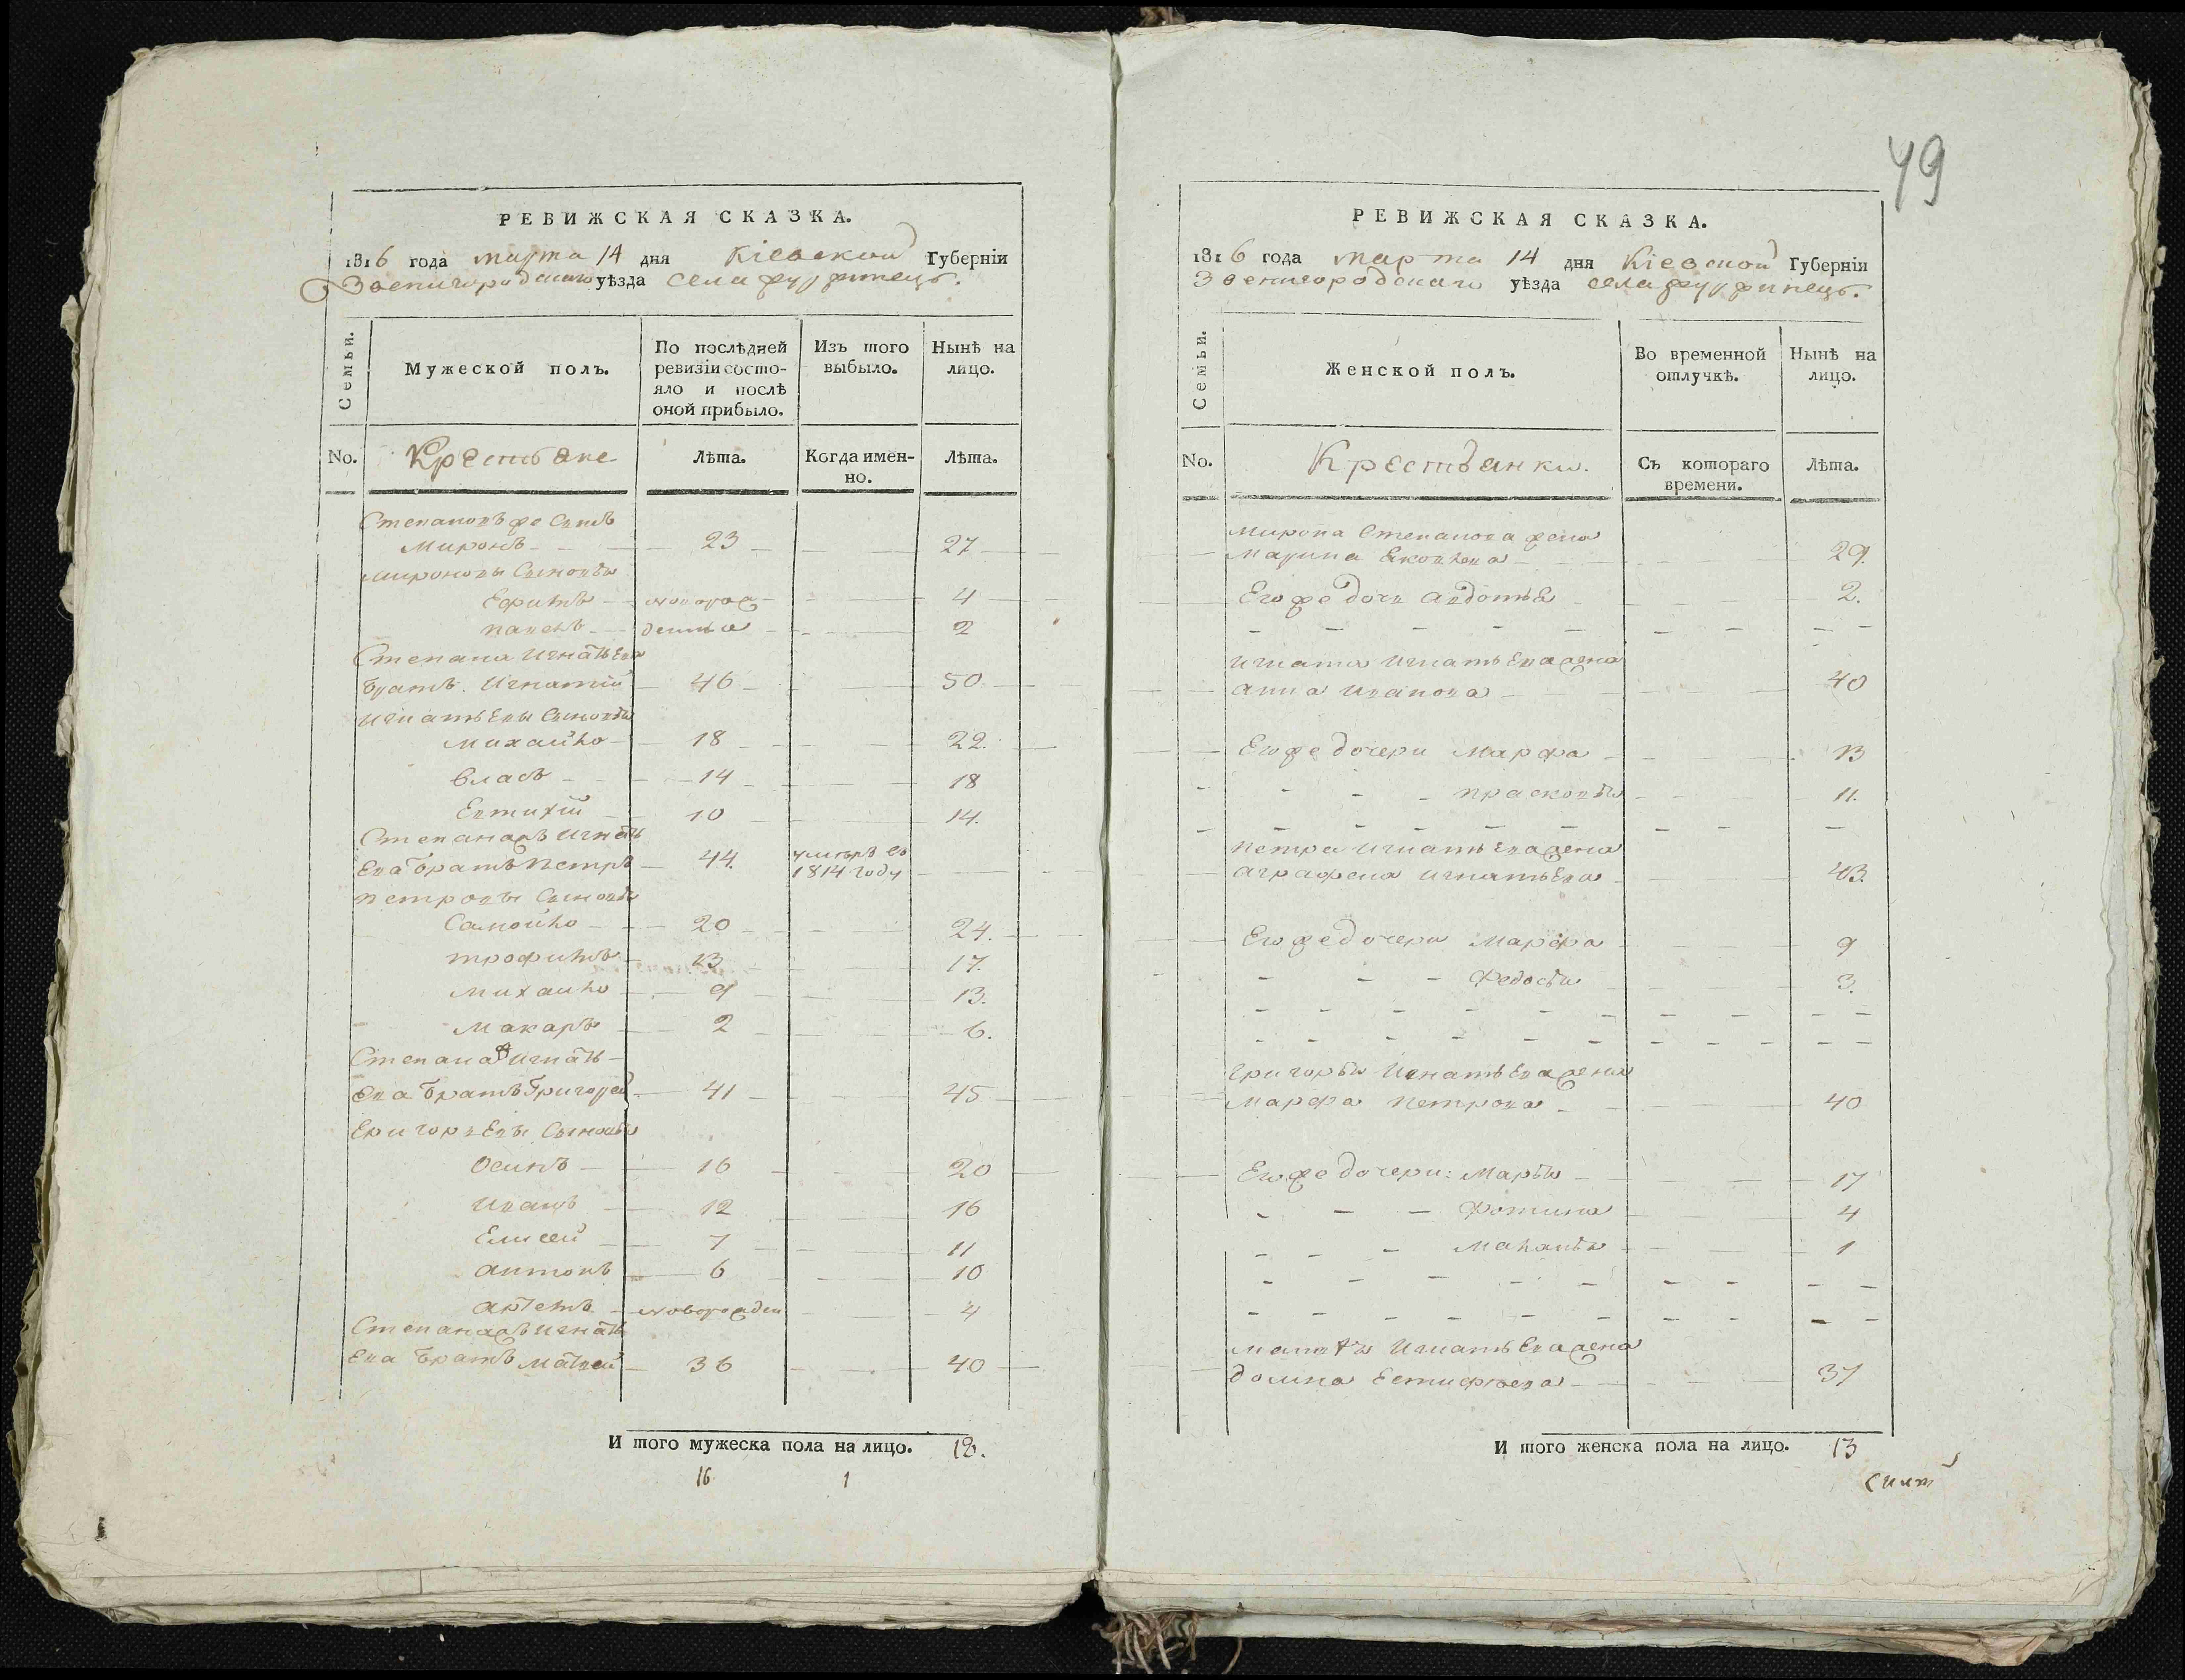 49
РЕВИЖСКАЯ СКАЗКА.
1816 года марта 14 дня Кіевской Губерніи
Звенигородскаго уѣзда села
Семьи.
Мужеской полъ.
По послѣдней ревизіи состо-
яло и послѣ
оной прибыло.
Изъ того выбыло.
Нынѣ на лицо.
No. Крестьяне Лѣта. Когда имен-
но. Лѣта.
Степановъ же Сынъ
Миронъ 23 27
Мироновы Сыновья
Ефимъ новорож 4
павелъ денныя 2
Степана Игнатьева
братъ Игнатій 46 50
Игнатьевы Сыновья
Михайло 18 22.
Власъ 14 18
Евтихій 10 14.
Степанажъ Игнать
Ева братъ Петръ 44. умеръ въ
1814 году
петровы Сыновья
Самойло 20 24.
трофимъ 13 17.
Михайло 9 13.
Макаръ 2 6.
Степана Игнать
Ева братъ Григорей 41 45
Григорьевы Сыновья
Осипъ 16 20
Иванъ 12 16
Елисей 7 11
антонъ 6 10
артемъ новорожден 4
Степанажъ Игнать
Ева братъ Матвей 36 40
И того мужеска пола на лицо. 18.
16 1
РЕВИЖСКАЯ СКАЗКА.
1816 года марта 14 дня Кіевской Губернія
Звенигородскаго уѣзда села
Семьи.
Женской полъ.
Во временной
отлучкѣ.
Нынѣ на
лицо.
No. Крестьянки. Съ котораго
времени. Лѣта.
Мирона Степанова жена
Марина Яковлева 29.
Его же дочь авдотья 2.
Игната Игнатьева жена
анна Иванова 40
Его же дочери Марфа 13
прасковья 11.
петра Игнатьева жена
аграфена Игнатьева 43.
Его же дочери Марфа 9
Федосья 3.
григорья Игнатьева жена
Марфа петрова 40
Его же дочери: Марья 17
Фотина 4
Маланья 1
Матвѣя Игнатьева жена
домна Естифѣева 37
И того женска пола на лицо. 13